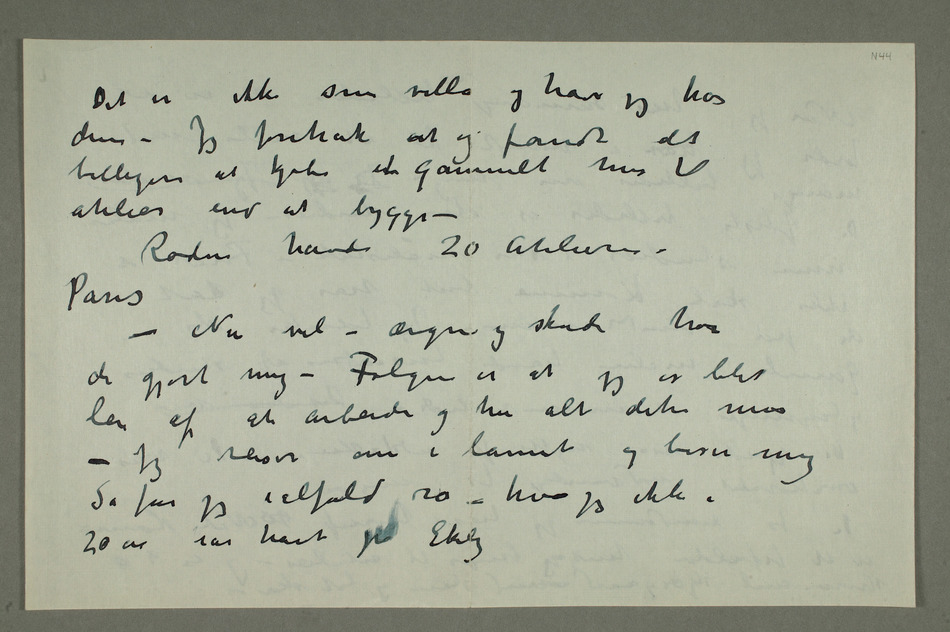 N44
Det er ikke som villa og haus jeg har
dem – Jeg foretrak at jeg fandt det
billigere at kjøbe et gammelt hus til
atelier end at bygge –
Rodin havde 20 Atelierer –
Paris
– Nu vel – ærgre og skade har
de gjort mig – Følgen er at jeg er blet
lei af at arbeide og ha alt dette mas
– Jeg reiser om i lannet og birer mig
Så får jeg ialfald ro – hva jeg ikke i
20 år har havt på Ekely